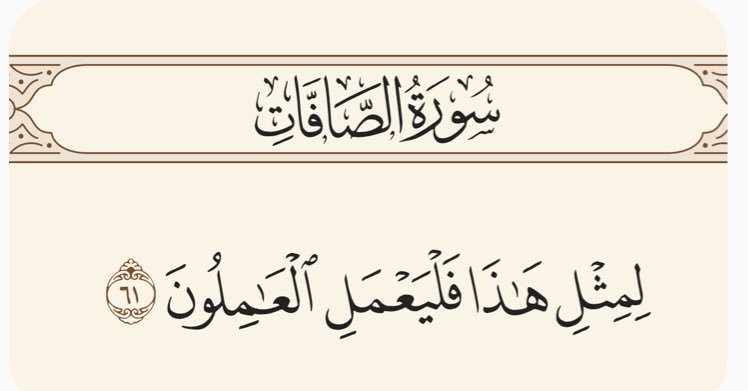 سُورَةُ الصَّافَّاتِ
لِمِثْلِ هَـٰذَا فَلْيَعْمَلِ ٱلْعَـٰمِلُونَ ٦١